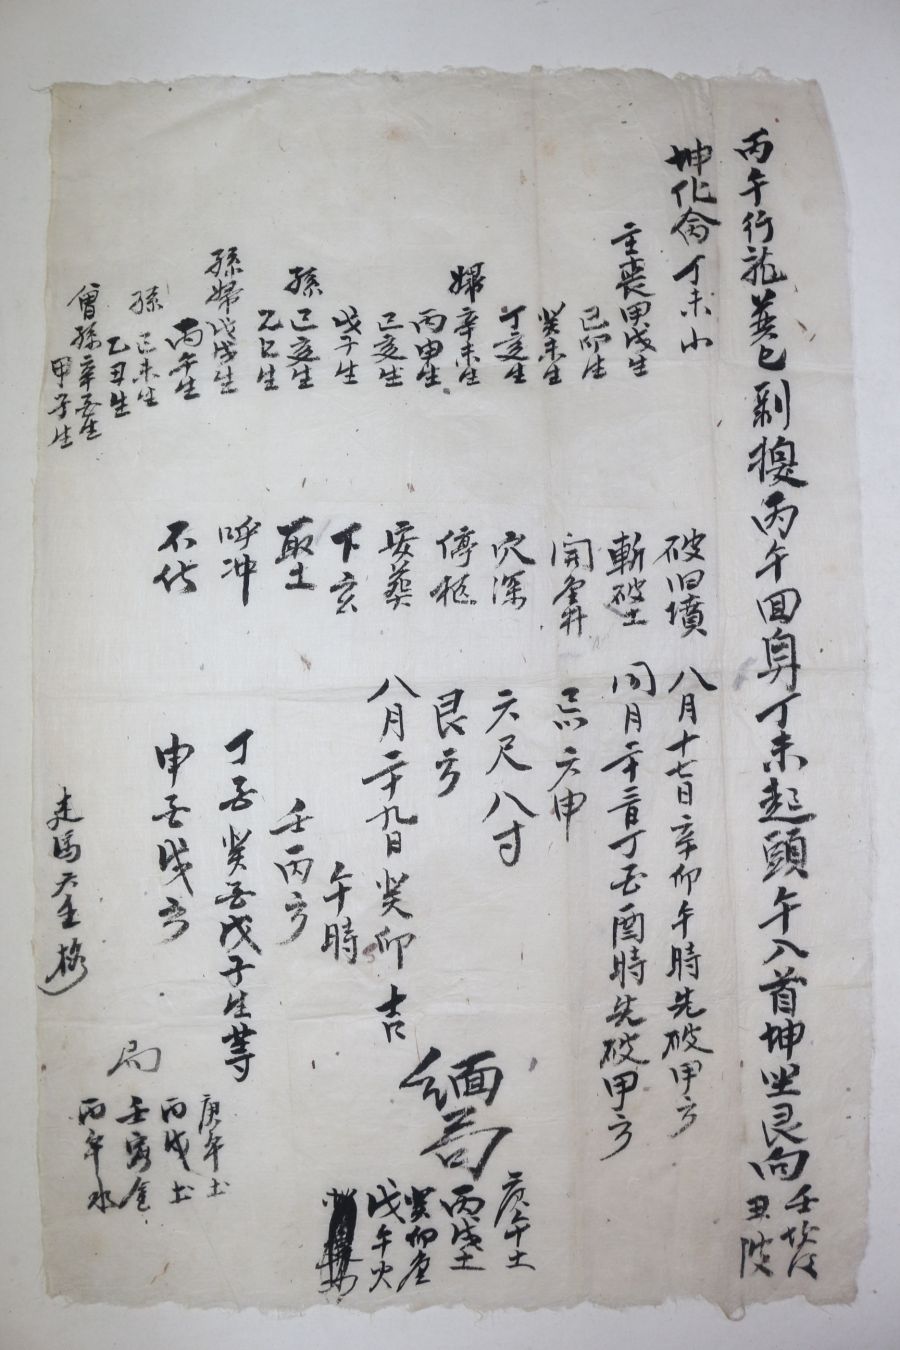 丙午行龍巽巳剝換丙午回身丁未起頭午入首坤坐艮向
壬坟
丑破
坤化命丁未小
主喪甲戌生
己卯生
癸未生
丁亥生
婦辛未生
丙申生
己亥生
戊子生
孫己亥生
乙巳生
孫婦戊戌生
丙午生
孫己未生
乙丑生
曾孫辛丑生
甲子生
破旧墳 八月十七日辛卯午時先破甲方
斬破土 同月二十三日丁酉時先破甲方
開金井 忌六申
穴深 六尺八寸
停柩 艮方
安葬 八月二十九日癸卯吉
下玄 午時
取土 壬丙方
呼冲 丁丑癸丑戊子生等
不伏 申丑戌方
走馬六壬格
緬局
庚午土
丙戌土
癸卯金
戊午火
局
庚午土
丙戌土
壬寅金
丙午水